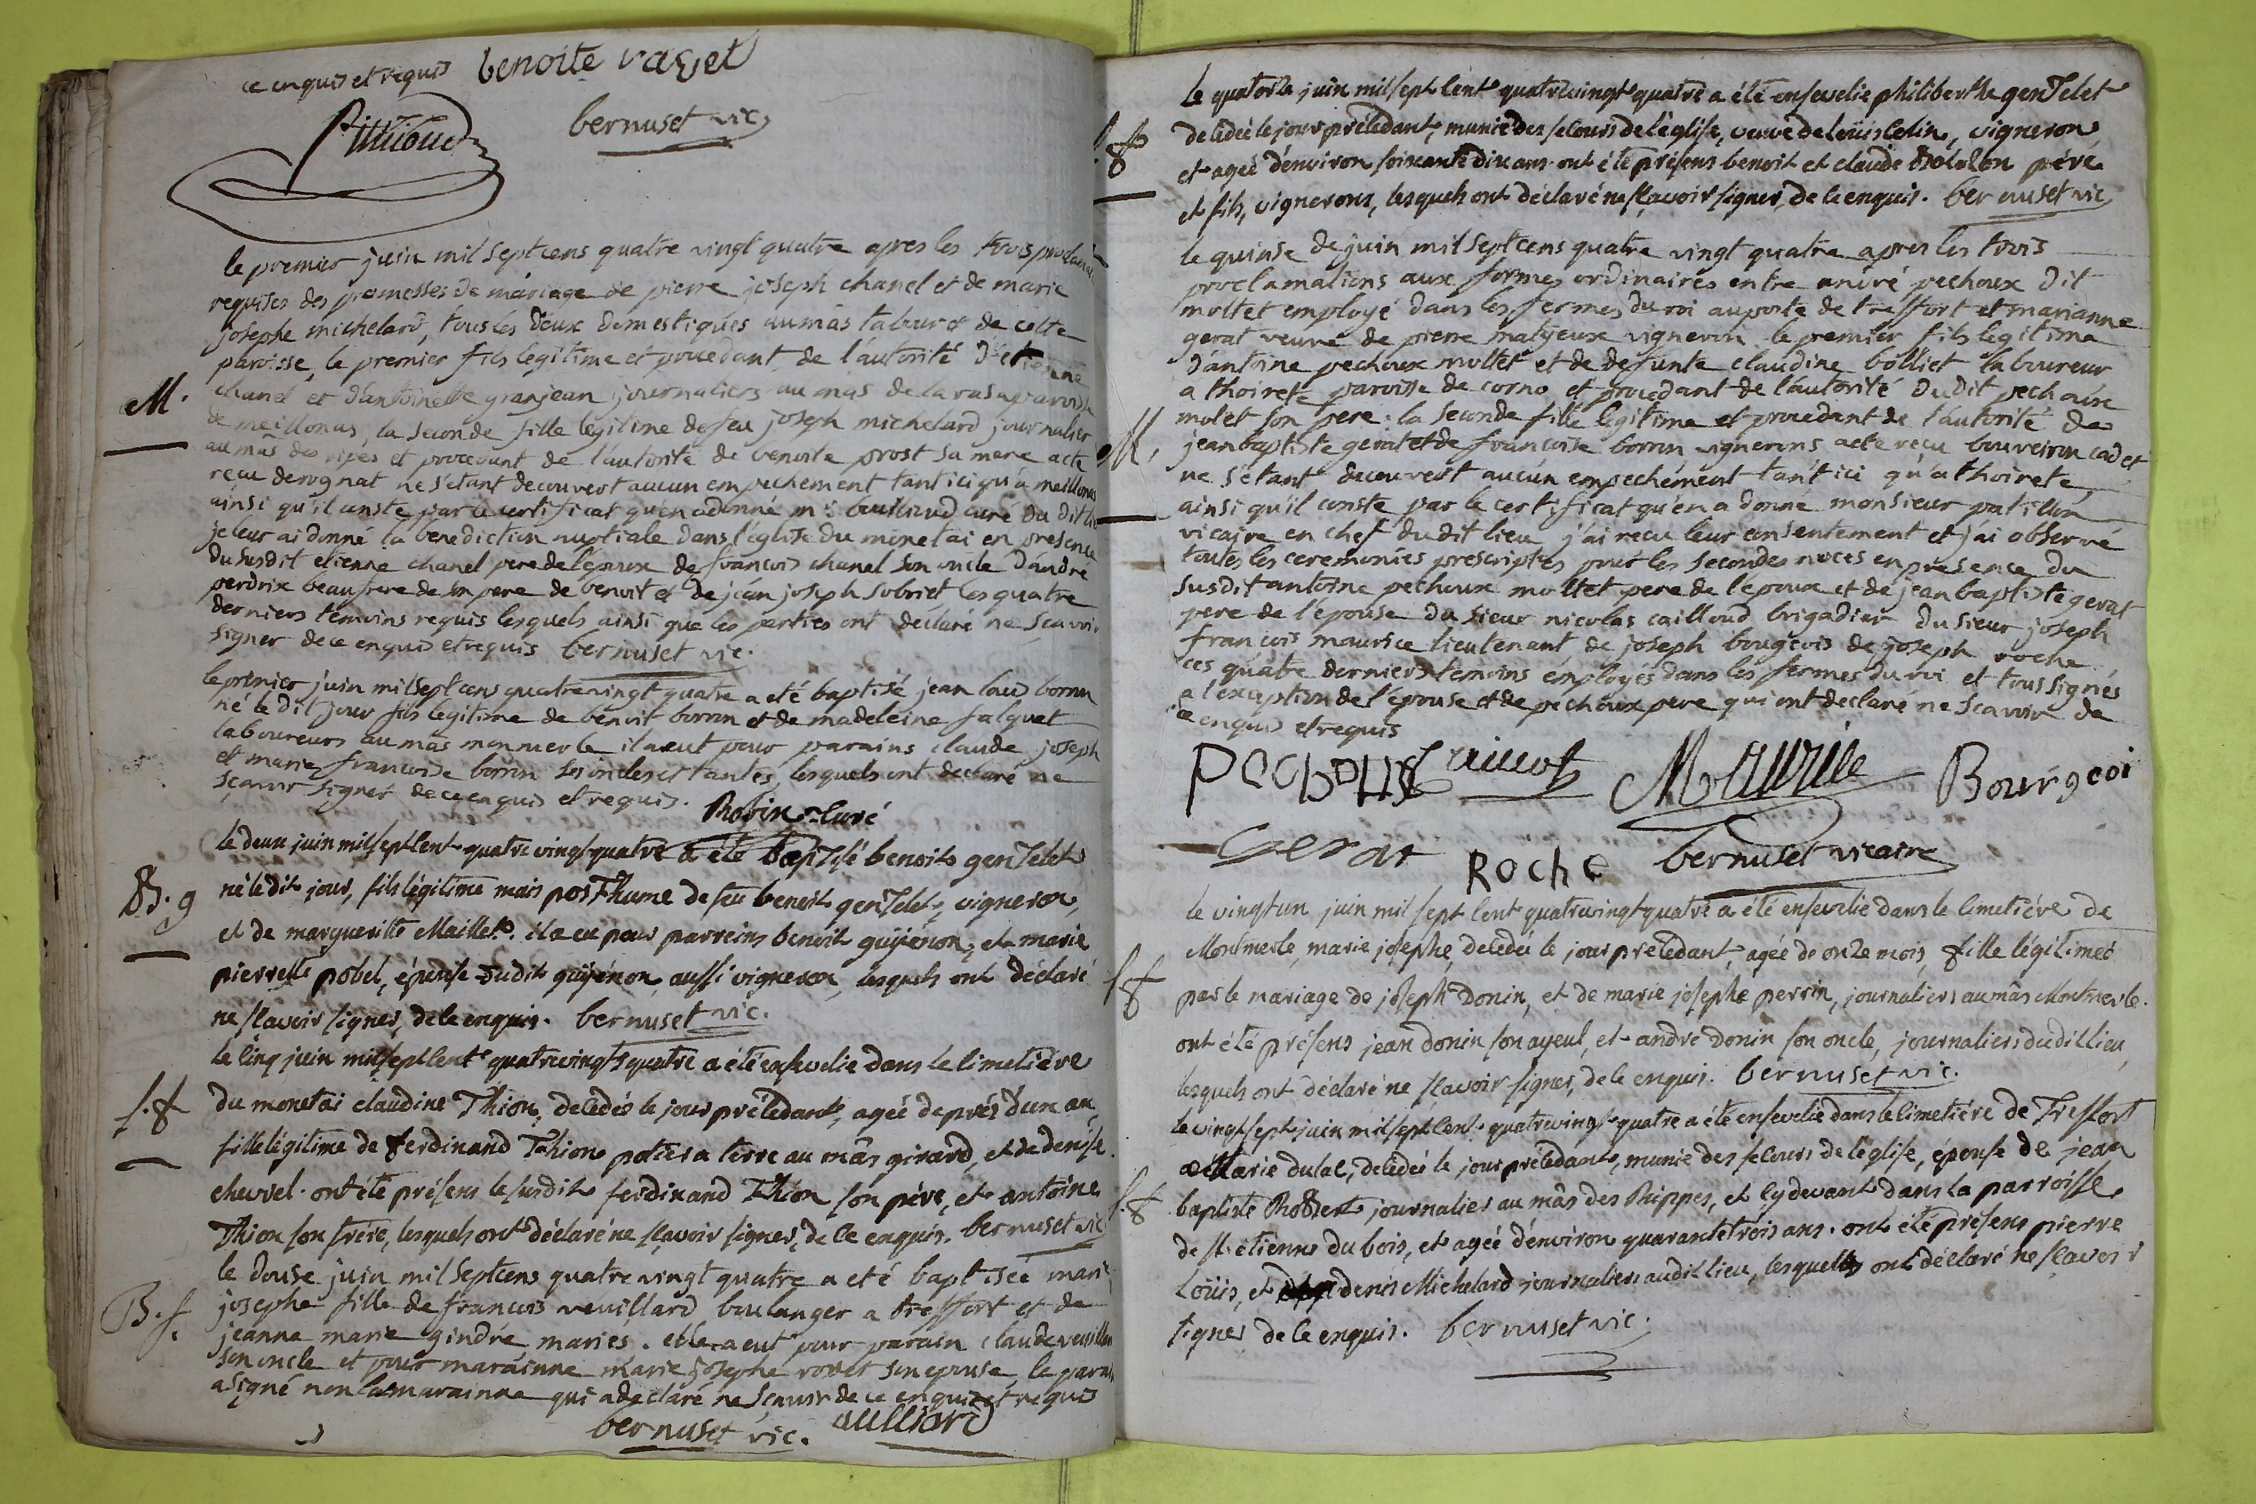 ce enquis et requis benoite ravet
bernuset vic.
le premier juin mil sept cens quatre vingt quatre apres les trois
requises des promesses de mariage de pierre joseph chanel et de marie
josephe michelard, tous les deux domestiques au mas tabouret de cette
paroisse, le premier fils legitime et procedant de l'autorité d'etienne
chanel et d'antoinette granjean journaliers au mas de la rasa paroisse
M.
de meillonas, la seconde fille legitime de feu joseph michelard journalier
au mas des ripes et procedant de l'autorité de benoite prost sa mere acte
reçu derognat ne s'etant decouvert aucun empechement tant ici qu'a meillonas
ainsi qu'il conste par le certificat qu'en a donné mr bouilloud curé du dit
je leur ai donné la benediction nuptiale dans l'eglise du monetai en presence
du susdit etienne chanel pere de l'époux de françois chanel son oncle d'andré
perdrix beaufrere de son pere de benoit et de jean joseph sobriet les quatre
derniers temoins requis lesquels ainsi que les parties ont déclaré ne sçavoir
signer de ce enquis et requis bernuset vic.
le premier juin mil sept cens quatre vingt quatre a eté baptisé jean borron
né le dit jour fils legitime de benoit borron et de madeleine falquet
laboureurs au mas monmerle il a eut pour parains claude joseph
et marie françoise borron ses oncles et tantes, lesquels ont declaré ne
sçavoir signer de ce enquis et requis.
Robin curé
le deux juin mil sept cent quatre vingt quatre a été baptisé benoit genTelet
B. g
né le dit jour, fils légitime mais posthume de feu benoit genTelet, vigneron,
et de margueritte Maillet. il a eu pour parreins benoit guyénon, et marie
pierrette pobel, épouse dudit guyénon, aussi vigneron, lesquels ont déclaré
ne sçavoir signer, de ce enquis. bernuset vic.
le cinq juin mil sept cent quatre vingt quatre a été ensevelie dans le cimetiére
s. f
du monetai claudine Thion, decedeé le jour précedant, ageé de prés d'un an,
fille légitime de ferdinand Thion potier a terre au mâs girard, et de denise
chevrel. ont été présens le susdit ferdinand Thion son pére, et antoine
Thion son frére, lesquels ont déclaré ne sçavoir signer, de ce enquis. bernuset vic.
le douse juin mil sept cens quatre vingt quatre a eté baptisée marie
B. f.
josephe fille de françois veuillard boulanger a treffort et de
jeanne marie gindre mariés. elle a eut pour parain claude veuillard
son oncle et pour marainne marie josephe rover son epouse, le parain
a signé non la marainne qui a declaré ne sçavoir de ce enquis et requis
bernuset vic.
le quatorze juin mil sept cent quatre vingt quatre a été ensevelie philiberthe genTelet
s. f
decedeé le jour précedant, munie des secours de l'église, veuve de loüis colin, vigneron
et ageé d'environ soixante dix ans. ont été présens benoit et claude pére
et fils, vignerons, lesquels ont déclaré ne sçavoir signer, de ce enquis. bernuset vic.
le quinse de juin mil sept cens quatre vingt quatre apres les trois
proclamations aux formes ordinaires entre andré pechoux dit
moltet employé dans les fermes du roi au poste de treffort et marianne
gerat veuve de pierre matyeux vigneron le premier fils legitime
d'antoine pechoux moltet et de defunte claudine bolliet laboureur
a thoirete paroisse de corno et procedant de l'autorité dudit pechoux
molet son pere. la seconde fille legitime et procedant de l'autorité de
M.
jean baptiste gerat et de françoise borron vignerons acte reçu bouveiron cadet
ne s'etant decouvert aucun empechement tant ici qu'a thoirete,
ainsi qu'il conste par le certificat qu'en a donné monsieur patillon
vicaire en chef dudit lieu j'ai recu leur consentement et j'ai observé
toutes les ceremonies prescriptes pour les secondes noces en presence du
susdit antoine pechoux moltet pere de l'epoux et de jean baptiste gerat
pere de l'épouse du sieur nicolas cailloud brigadier du sieur joseph
françois maurice lieutenant de joseph bougeois de joseph roche
ces quatre derniers temoins employés dans les fermes du roi et tous signés
a l'exception de l'épouse et de pechoux pere qui ont declaré ne scavoir de
ce enquis et requis
Maurice Bourgeoi
Gerat Roche bernuset vicaire
le vingt un juin mil sept cent quatre vingt quatre a été ensevelie dans le cimetiére de
Montmerle, marie josephe, decedeé le jour précedant, agée de onze mois, fille légitime
s. f
par le mariage de joseph Donin, et de marie josephe perrin, journaliers au mâs Montmerle.
ont été présens jean donin son ayeul, et andré donin son oncle, journaliers du dit lieu,
lesquels ont déclaré ne sçavoir signer, de ce enquis. bernuset vic.
le vingt sept juin mil sept cent quatre vingt quatre a été ensevelie dans le cimetiére de Treffort
Marie dulac, decedeé le jour précedant, munie des secours de l'église, épouse de jean
s. f
baptiste Robert journalier au mâs des Rippes, et cy devant dans la parroisse
de st. étienne du bois, et ageé d'environ quarante trois ans. ont été présens pierre
Loüis, et denis Michelard journaliers audit lieu, lesquels ont déclaré ne sçavoir
signer de ce enquis. bernuset vic.